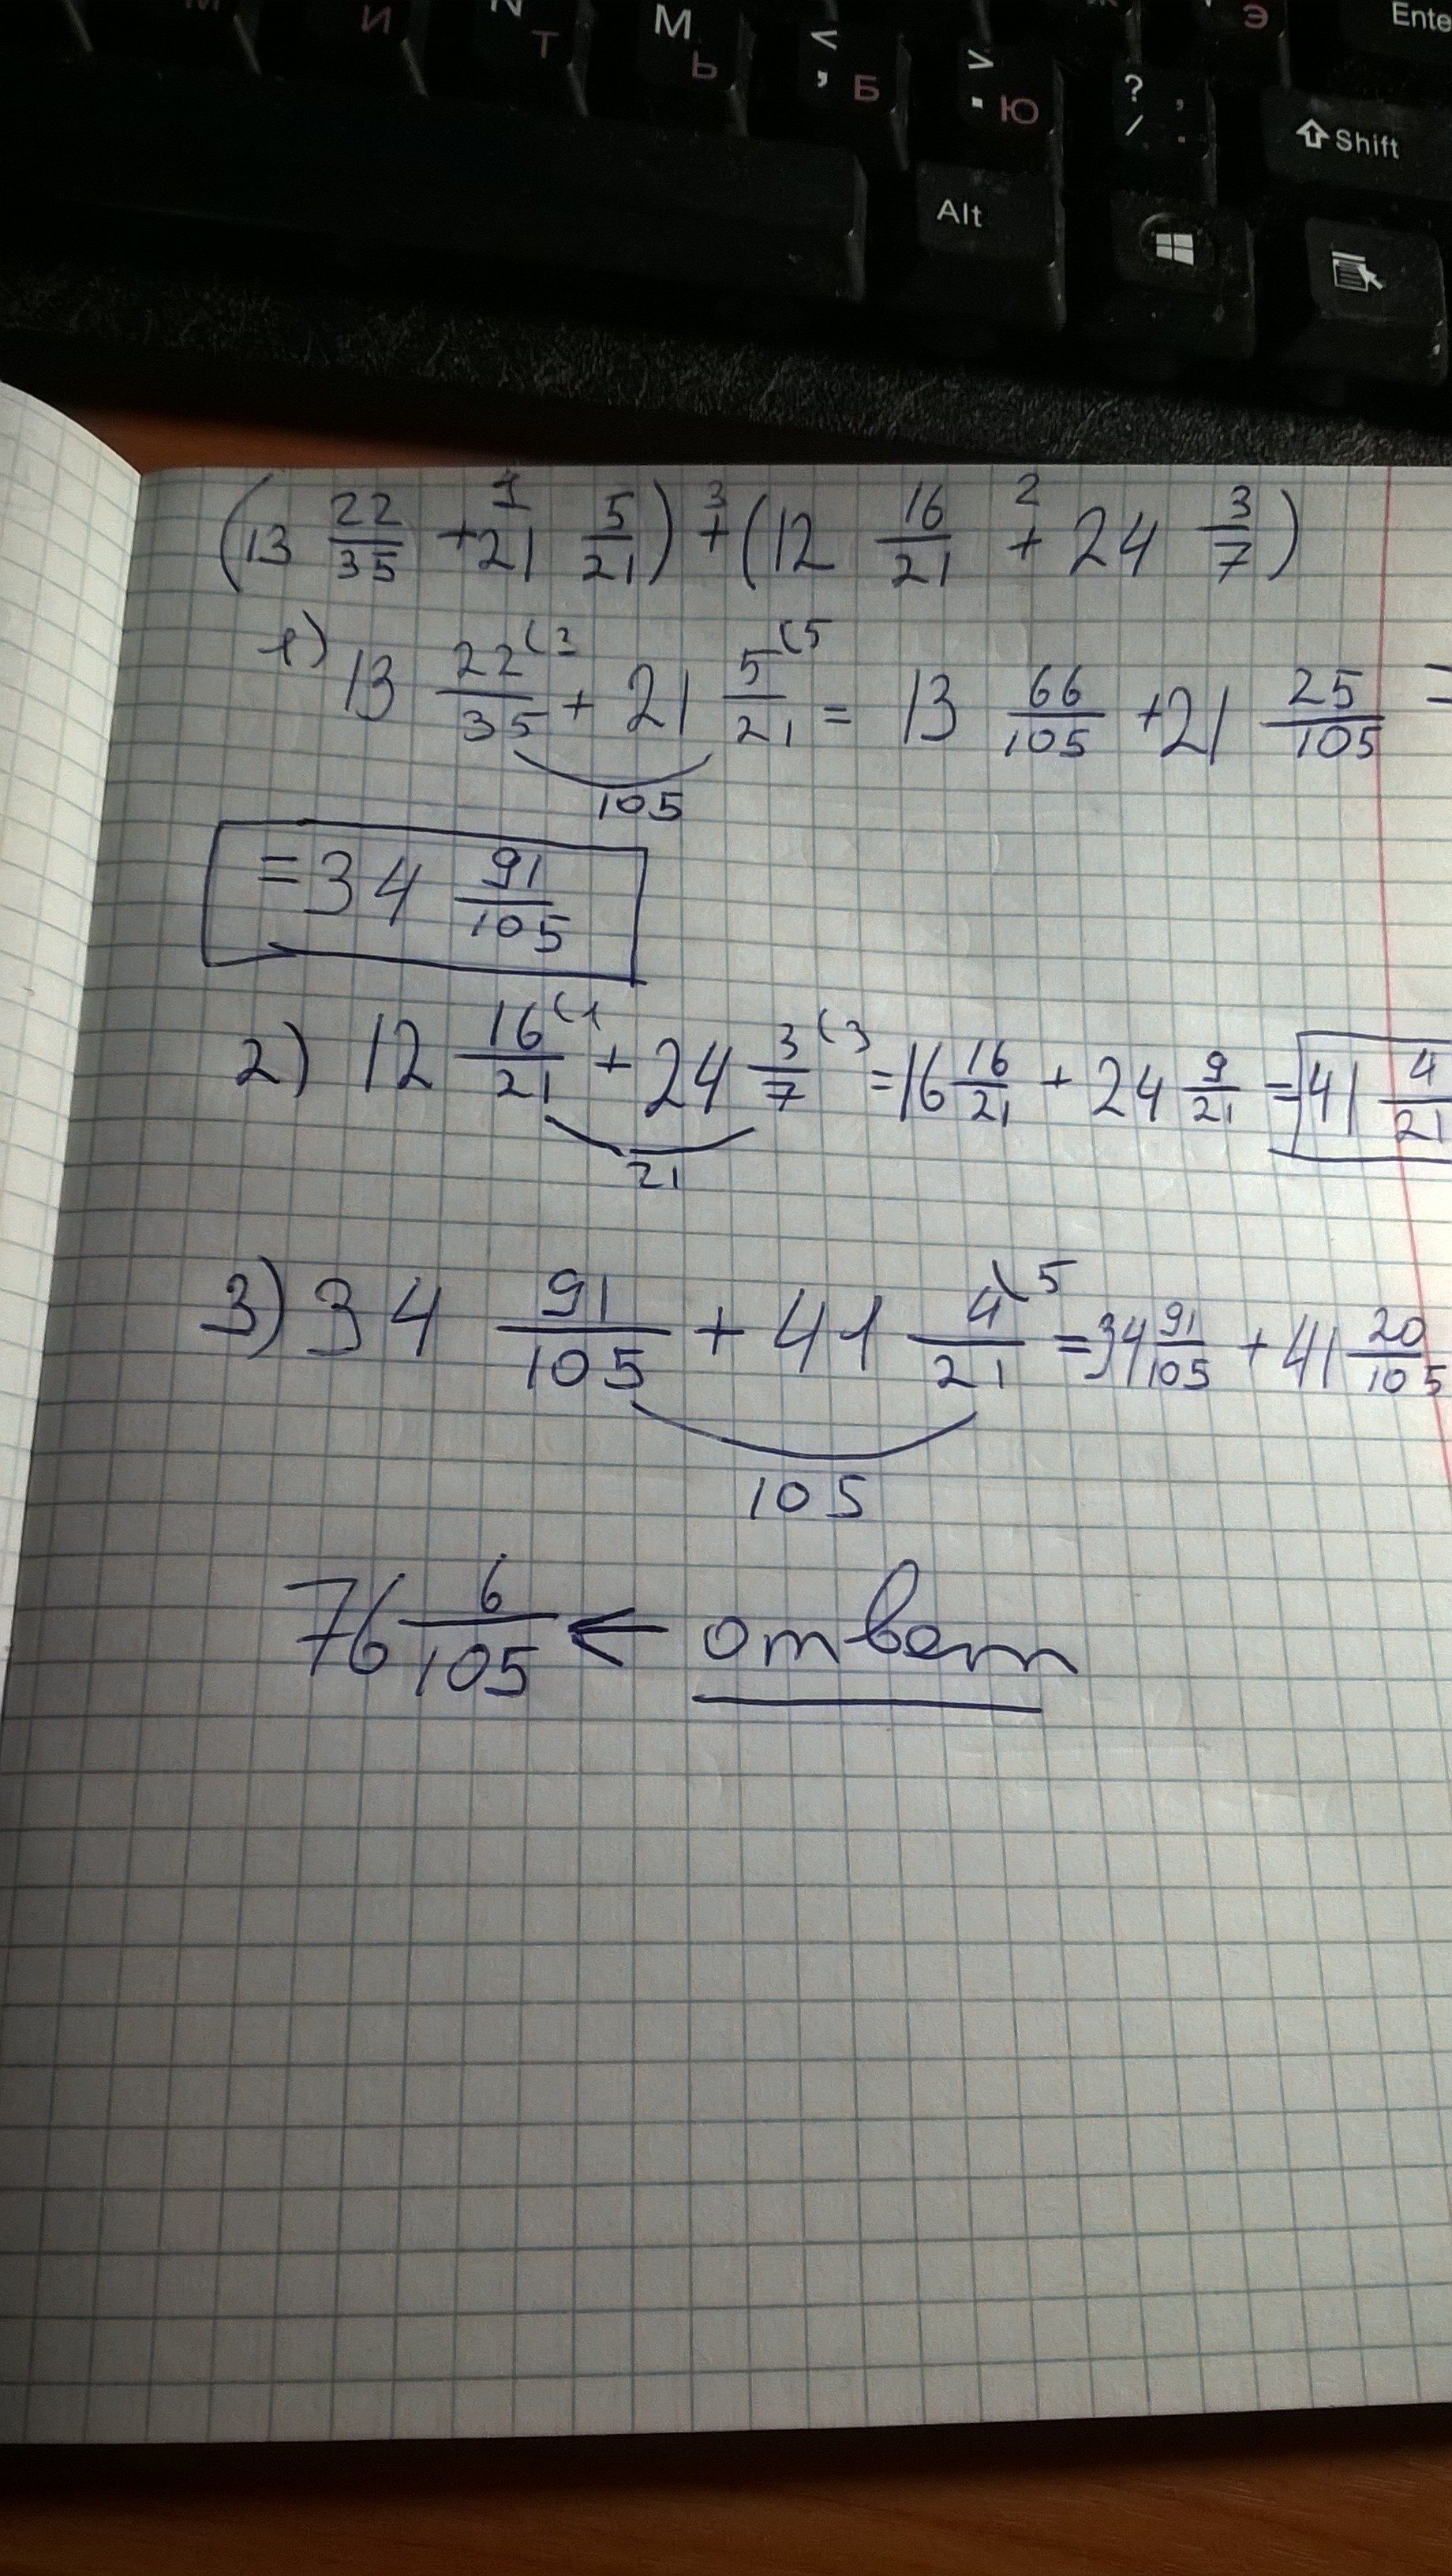 И N Т М Ь < , Б > . Ю ? , / . Э Enter
Shift
Alt
(13 22/35 +¹ 21 5/21) +³ (12 16/21 +² 24 3/7)
1) 13 22(3/35 + 21 5(5/21 = 13 66/105 + 21 25/105 =
105
= 34 91/105
2) 12 16(1/21 + 24 3(3/7 = 16 16/21 + 24 9/21 = 41 4/21
21
3) 34 91/105 + 41 4(5/21 = 34 91/105 + 41 20/105
105
76 6/105 ← ответ